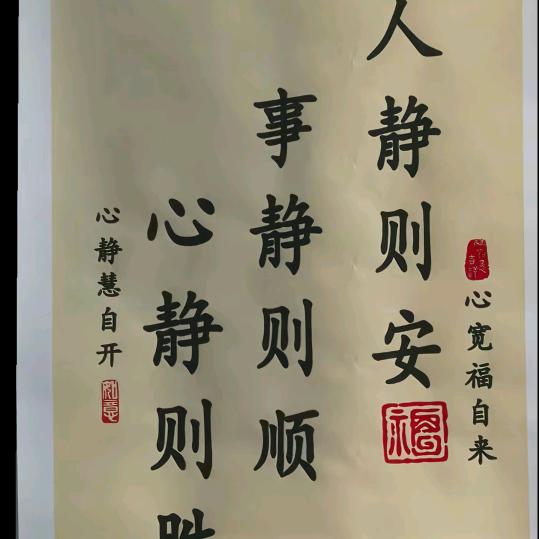 心宽福自来
人静则安
福
事静则顺
心静则
心静慧自开
如意